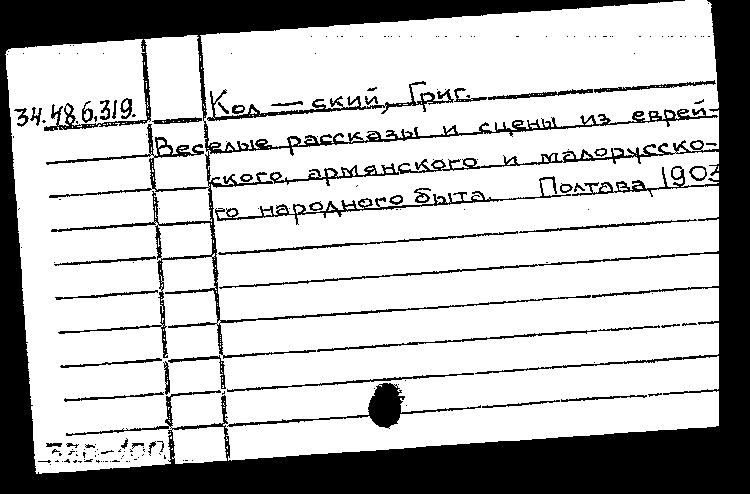 34.48.6.319.
Кол — ский, Григ.
Веселые рассказы и сцены из еврей-
ского, армянского и малорусско-
го народного быта. Полтава, 1903